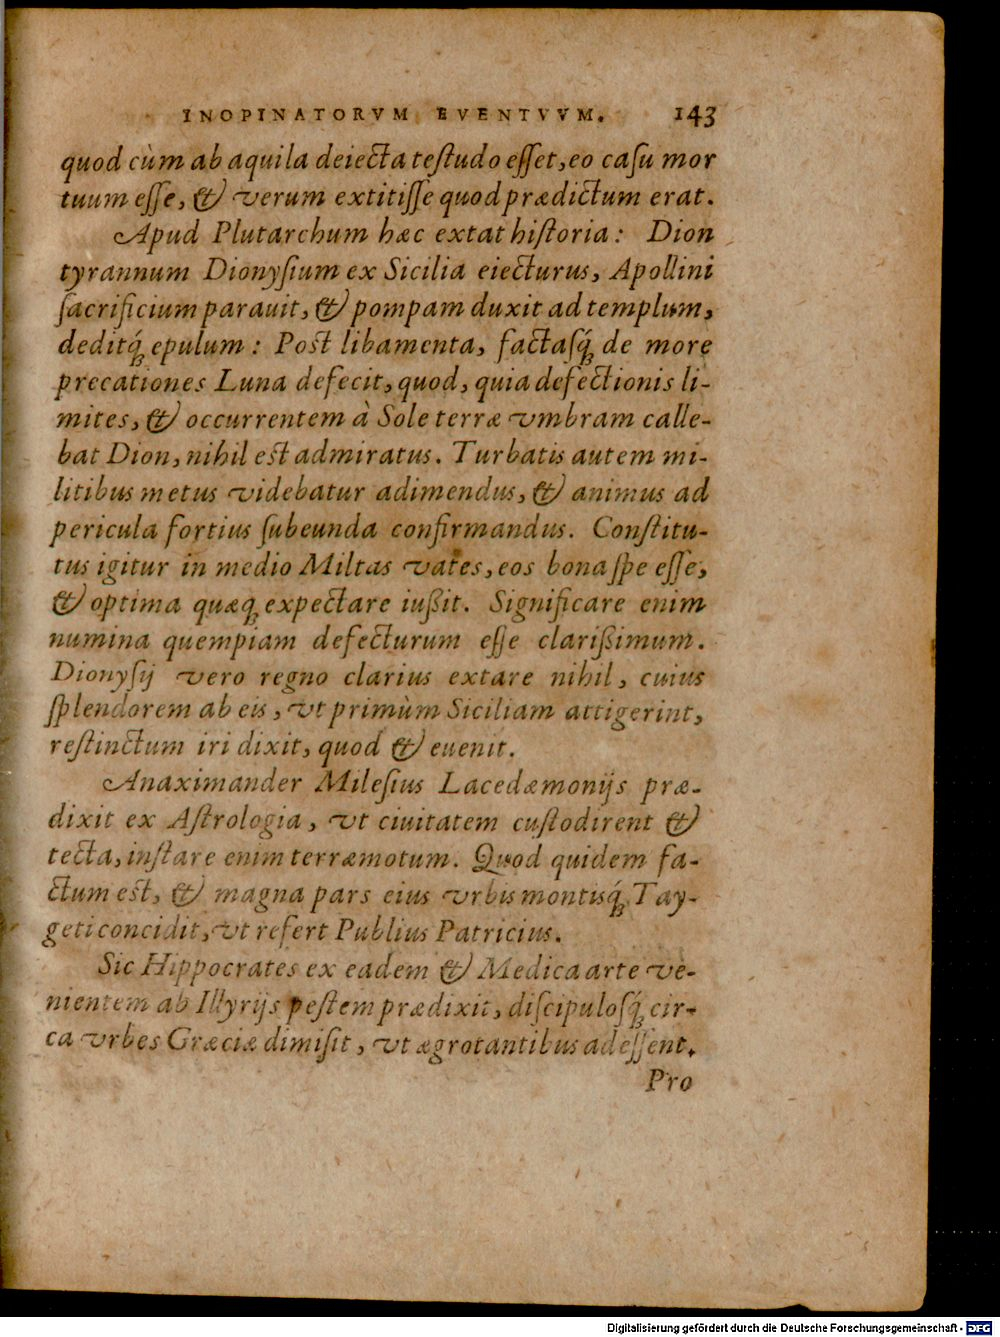 INOPINATORVM EVENTVVM. 143
quod cùm ab aquila deiecta teſtudo eſſet, eo caſu mor
tuum eſſe, & verum extitiſſe quod prædictum erat.
Apud Plutarchum hæc extat hiſtoria: Dion
tyrannum Dionyſium ex Sicilia eiecturus, Apollini
ſacrificium parauit, & pompam duxit ad templum,
deditq́ꝫ epulum: Post libamenta, factaſq́ꝫ de more
precationes Luna defecit, quod, quia defectionis li-
mites, & occurrentem à Sole terræ vmbram calle-
bat Dion, nihil est admiratus. Turbatis autem mi-
litibus metus videbatur adimendus, & animus ad
pericula fortius ſubeunda confirmandus. Conſtitu-
tus igitur in medio Miltas vates, eos bona ſpe eſſe,
& optima quæqꝫ expectare iußit. Significare enim
numina quempiam defecturum eſſe clarißimum.
Dionyſij vero regno clarius extare nihil, cuius
ſplendorem ab eis, vt primùm Siciliam attigerint,
reſtinctum iri dixit, quod & euenit.
Anaximander Mileſius Lacedæmonijs præ-
dixit ex Aſtrologia, vt ciuitatem cuſtodirent &
tecta, inſtare enim terræmotum. Quod quidem fa-
ctum est, & magna pars eius vrbis montisq́ꝫ Tay-
geti concidit, vt refert Publius Patricius.
Sic Hippocrates ex eadem & Medica arte ve-
nientem ab Illyrijs peſtem prædixit, diſcipuloſq́ꝫ cir-
ca vrbes Græciæ dimiſit, vt ægrotantibus adeſſent.
Pro
Digitalisierung gefördert durch die Deutsche Forschungsgemeinschaft - DFG